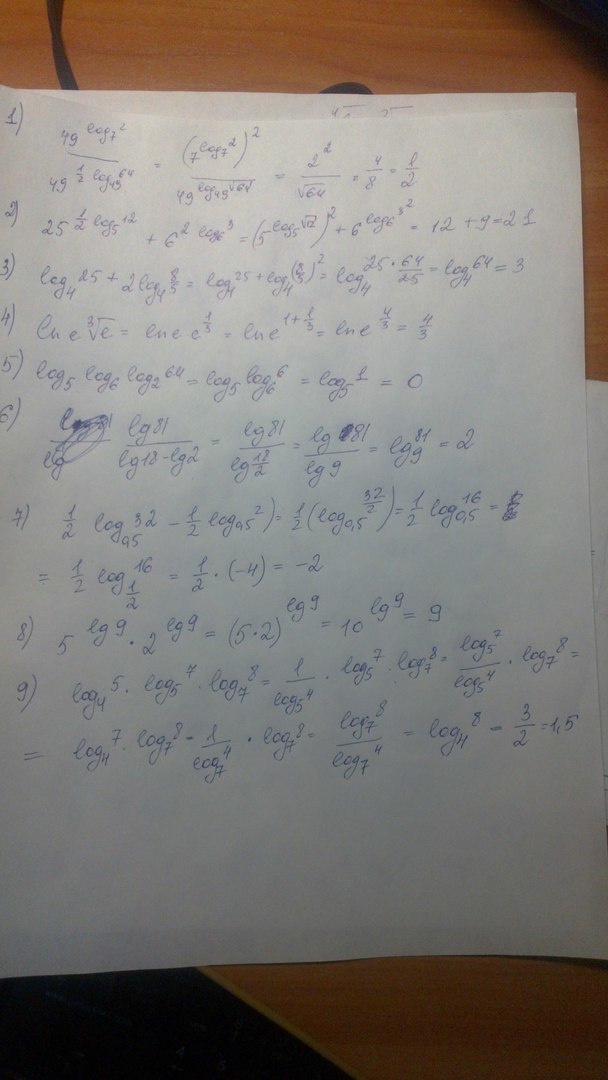 1) 49^(log_7 2) / 49^(1/2 log_49 64) = (7^(log_7 2))^2 / 49^(log_49 √64) = 2^2/√64 = 4/8 = 1/2
2) 25^(1/2 log_5 12) + 6^(2 log_6 3) = (5^(log_5 √12))^2 + 6^(log_6 3^2) = 12 + 9 = 21
3) log_4 25 + 2log_4 8/5 = log_4 25 + log_4 (8/5)^2 = log_4 25·64/25 = log_4 64 = 3
4) ln e ∛e = ln e e^(1/3) = ln e^(1+1/3) = ln e^(4/3) = 4/3
5) log_5 log_6 log_2 64 = log_5 log_6 6 = log_5 1 = 0
6) lg81/(lg18-lg2) = lg81/lg(18/2) = lg 81/lg 9 = log_9 81 = 2
7) 1/2 log_0,5 32 - 1/2 log_0,5 2) = 1/2 (log_0,5 32/2) = 1/2 log_0,5 16 =
= 1/2 log_(1/2) 16 = 1/2 · (-4) = -2
8) 5^(lg9) · 2^(lg9) = (5·2)^(lg9) = 10^(lg9) = 9
9) log_4 5 · log_5 7 · log_7 8 = 1/log_5 4 · log_5 7 · log_7 8 = log_5 7/log_5 4 · log_7 8 =
= log_4 7 · log_7 8 = 1/log_7 4 · log_7 8 = log_7 8/log_7 4 = log_4 8 = 3/2 = 1,5